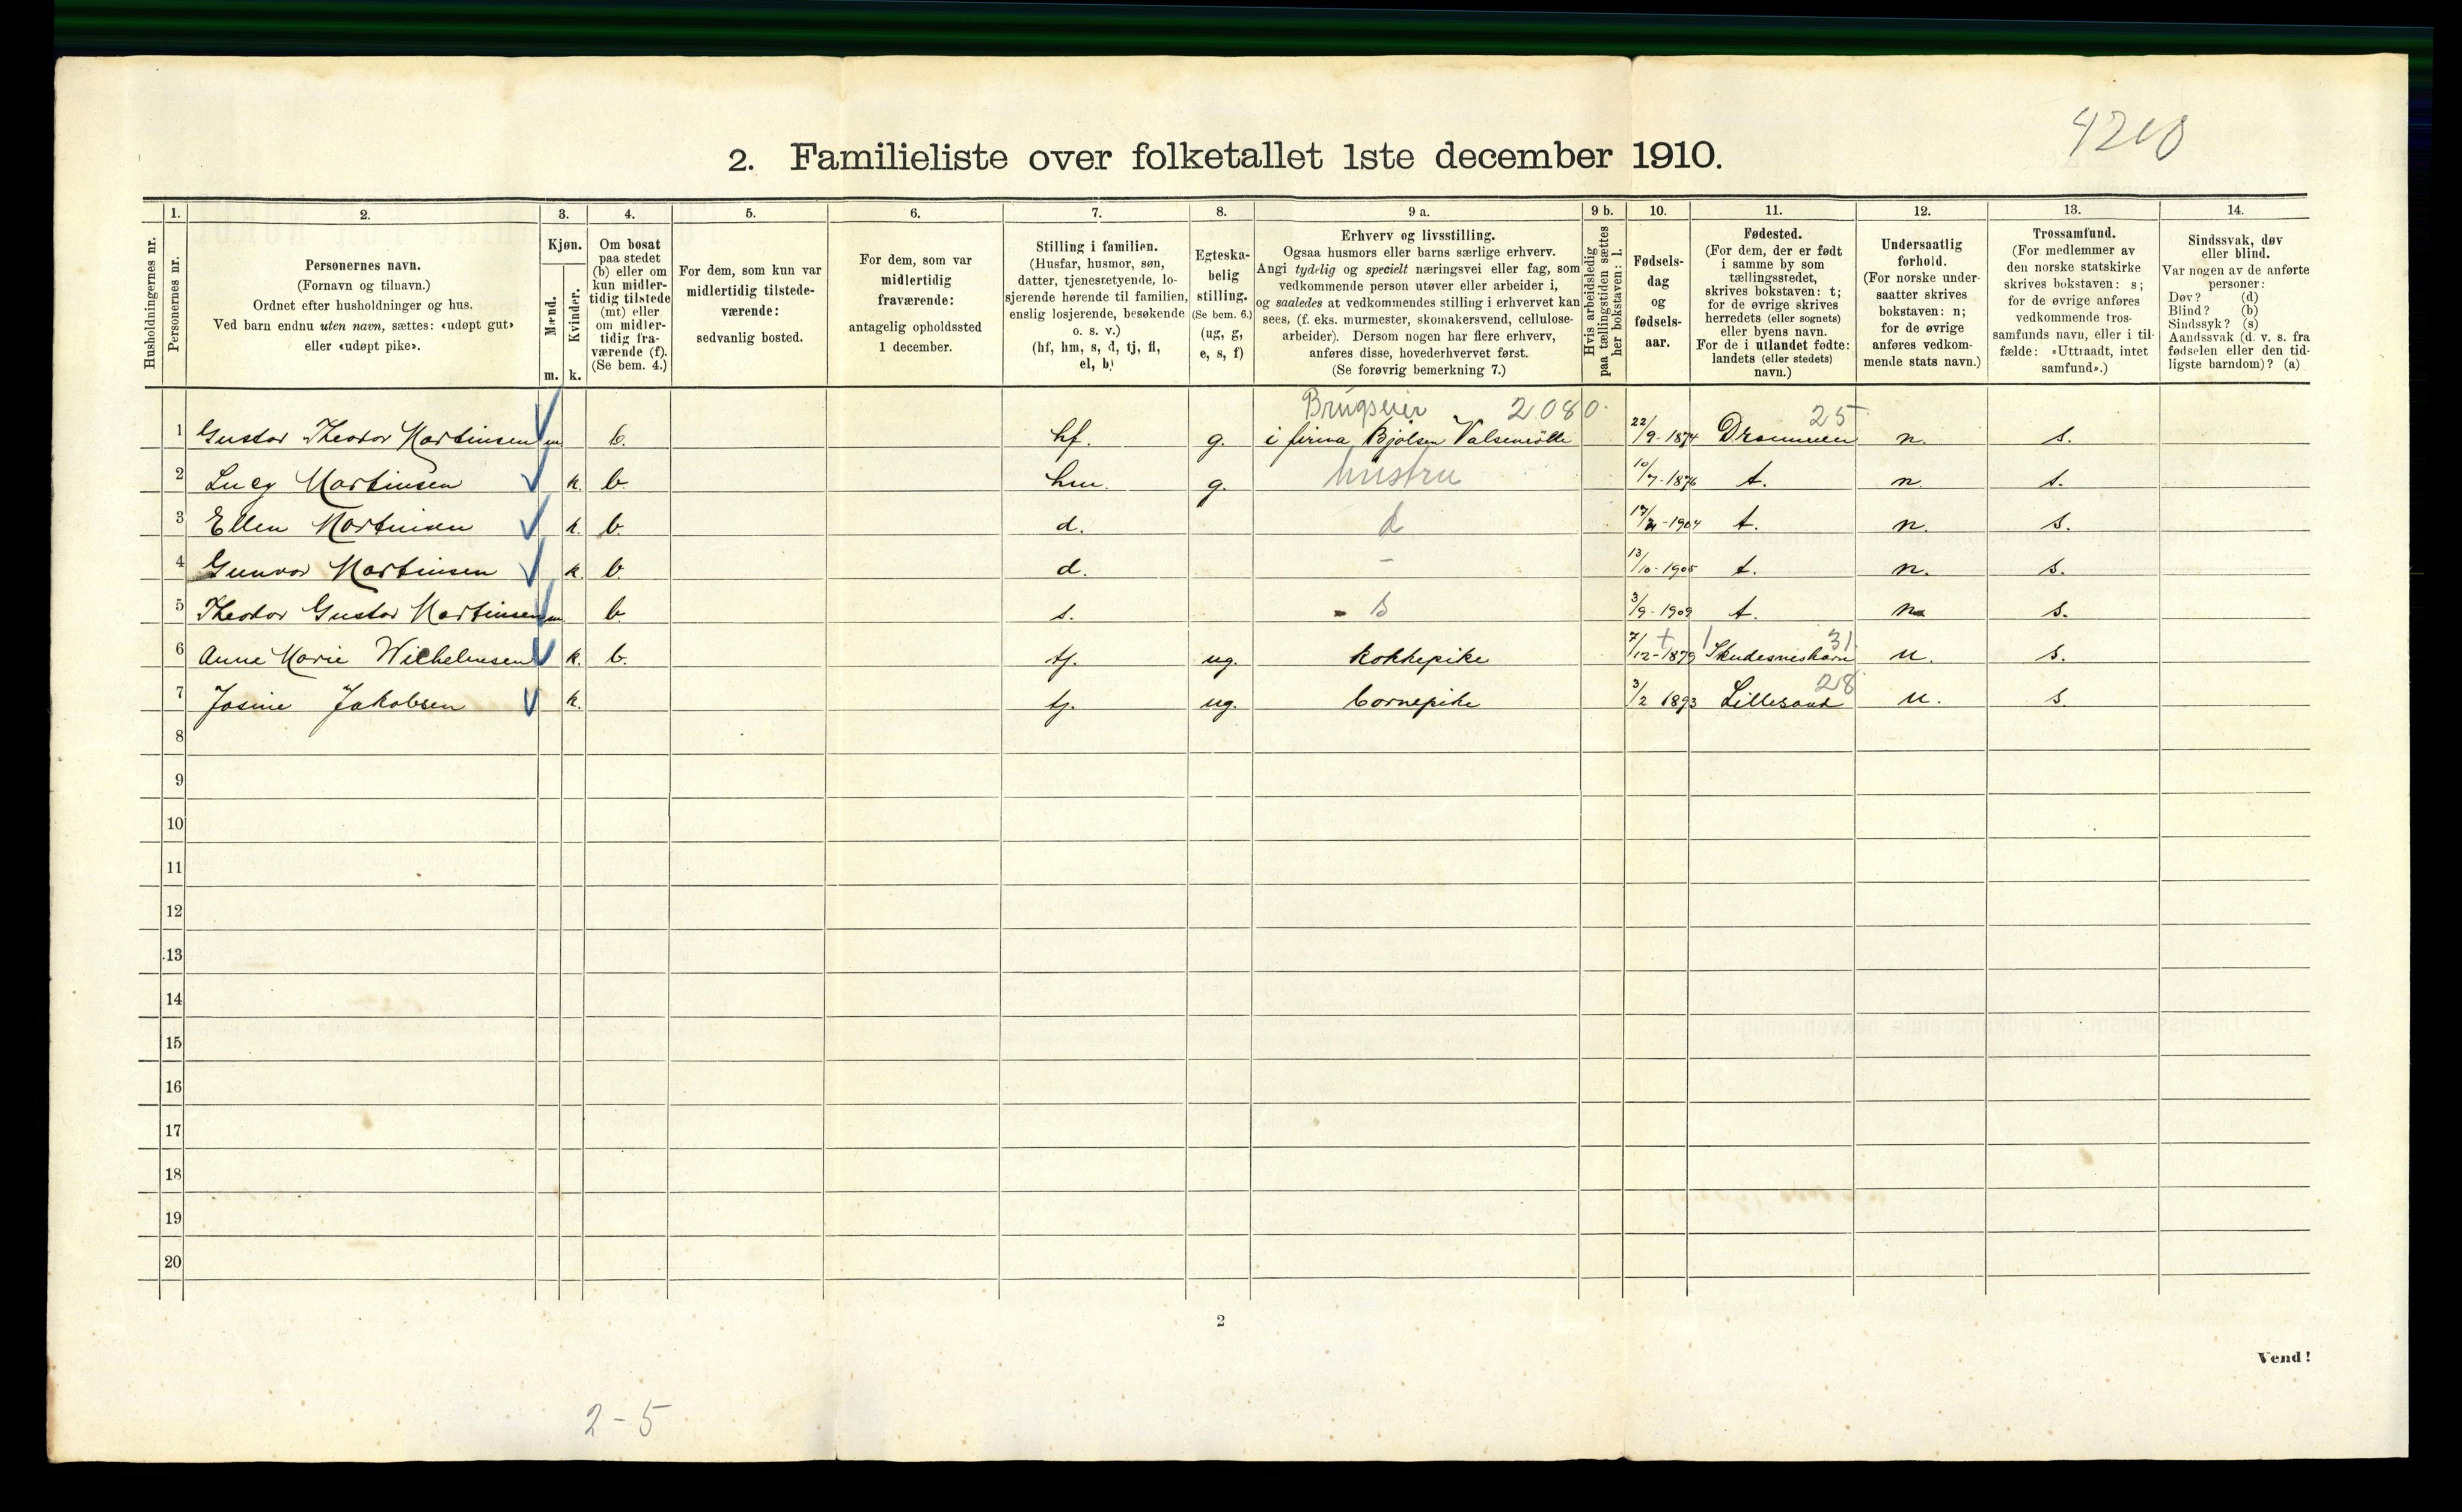 4210
2. Familieliste over folketallet 1ste december 1910.
Husholdningernes nr.
1.
Personernes nr.
2.
Personernes navn.
(Fornavn og tilnavn.)
Ordnet efter husholdninger og hus.
Ved barn endnu uten navn, sættes: «udøpt gut»
eller «udøpt pike».
3.
Kjøn.
Mænd.
m.
Kvinder.
k.
4.
Om bosat
paa stedet
(b) eller om
kun midler-
tidig tilstede
(mt) eller
om midler-
tidig fra-
værende (f).
(Se bem. 4.)
5.
For dem, som kun var
midlertidig tilstede-
værende:
sedvanlig bosted.
6.
For dem, som var
midlertidig
fraværende:
antagelig opholdssted
1 december.
7.
Stilling i familien.
(Husfar, husmor, søn,
datter, tjenestetyende, lo-
sjerende hørende til familien,
enslig losjerende, besøkende
o. s. v.)
(hf, hm, s, d, tj, fl,
el, b)
8.
Egteska-
belig
stilling.
(Se bem. 6.)
(ug, g,
e, s, f)
9 a.
Erhverv og livsstilling.
Ogsaa husmors eller barns særlige erhverv.
Angi tydelig og specielt næringsvei eller fag, som
vedkommende person utøver eller arbeider i,
og saaledes at vedkommendes stilling i erhvervet kan
sees, (f. eks. murmester, skomakersvend, cellulose-
arbeider). Dersom nogen har flere erhverv,
anføres disse, hovederhvervet først.
(Se forøvrig bemerkning 7.)
9 b.
Hvis arbeidsledig
paa tællingstiden sættes
her bokstaven: l.
10.
Fødsels-
dag
og
fødsels-
aar.
11.
Fødested.
(For dem, der er født
i samme by som
tællingsstedet,
skrives bokstaven: t;
for de øvrige skrives
herredets (eller sognets)
eller byens navn.
For de i utlandet fødte:
landets (eller stedets)
navn.)
12.
Undersaatlig
forhold.
(For norske under-
saatter skrives
bokstaven: n;
for de øvrige
anføres vedkom-
mende stats navn.)
13.
Trossamfund.
(For medlemmer av
den norske statskirke
skrives bokstaven: s;
for de øvrige anføres
vedkommende tros-
samfunds navn, eller i til-
fælde: «Uttraadt, intet
samfund».)
14.
Sindssvak, døv
eller blind.
Var nogen av de anførte
personer:
Døv? (d)
Blind? (b)
Sindssyk? (s)
Aandssvak (d. v. s. fra
fødselen eller den tid-
ligste barndom)? (a)
Brugseier 2080 25
1 Gustav Theodor Martinsen m b. hf. g. i firma Bjølsen Valsemølle 22/9-1874 Drammen n. s.
2 Lucy Martinsen k. b. hm. g. hustru 10/7-1876 t. n. s.
3 Ellen Martinsen k. b. d. d 1904 t. n. s.
4 Gunvor Martinsen k. b. d. – 13/10-1905 t. n. s.
5 Theodor Gustav Martinsen m. b. s. s 3/9-1909 t. n s.
31
6 Anna Marie Wilhelmsen k. b. tj. ug. kokkepike 7/12-1879 Skudesneshavn n. s.
28
7 Josine Jakobsen k. tj. ug. bornepike 3/2 1893 Lillesand n. s.
8
9
10
11
12
13
14
15
16
17
18
19
20
2
Vend!
2-5